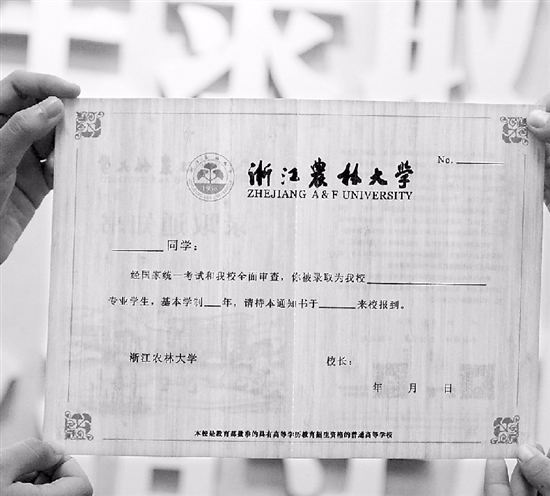 No.
浙江农林大学
ZHEJIANG A & F UNIVERSITY
同学：
经国家统一考试和我校全面审查，你被录取为我校
专业学生，基本学制 年，请持本通知书于 来校报到。
浙江农林大学
校长：
年 月 日
本校是教育部批准的具有高等学历教育招生资格的普通高等学校